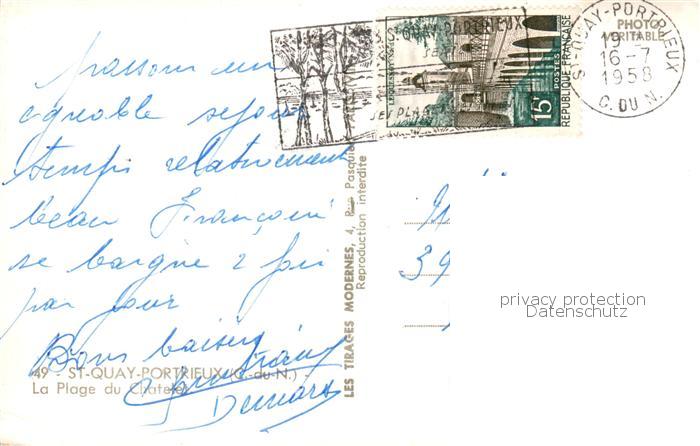 passons un
agréable séjour
temps relativement
beau Françoise
se baigne 2 fois
par jour
Bons baisers
49 - ST-QUAY-PORTRIEUX (C.-du-N.)
La Plage du Chatelet
LES TIRAGES MODERNES, 4, Rue Pasquier
Reproduction interdite
ST-QUAY-PORTRIEUX
SES PLAGES
15F
POSTES
REPUBLIQUE FRANÇAISE
PHOTO
VERITABLE
ST-QUAY-PORTRIEUX
19 -
16-7
1958
C. DU N.
39
privacy protection
Datenschutz